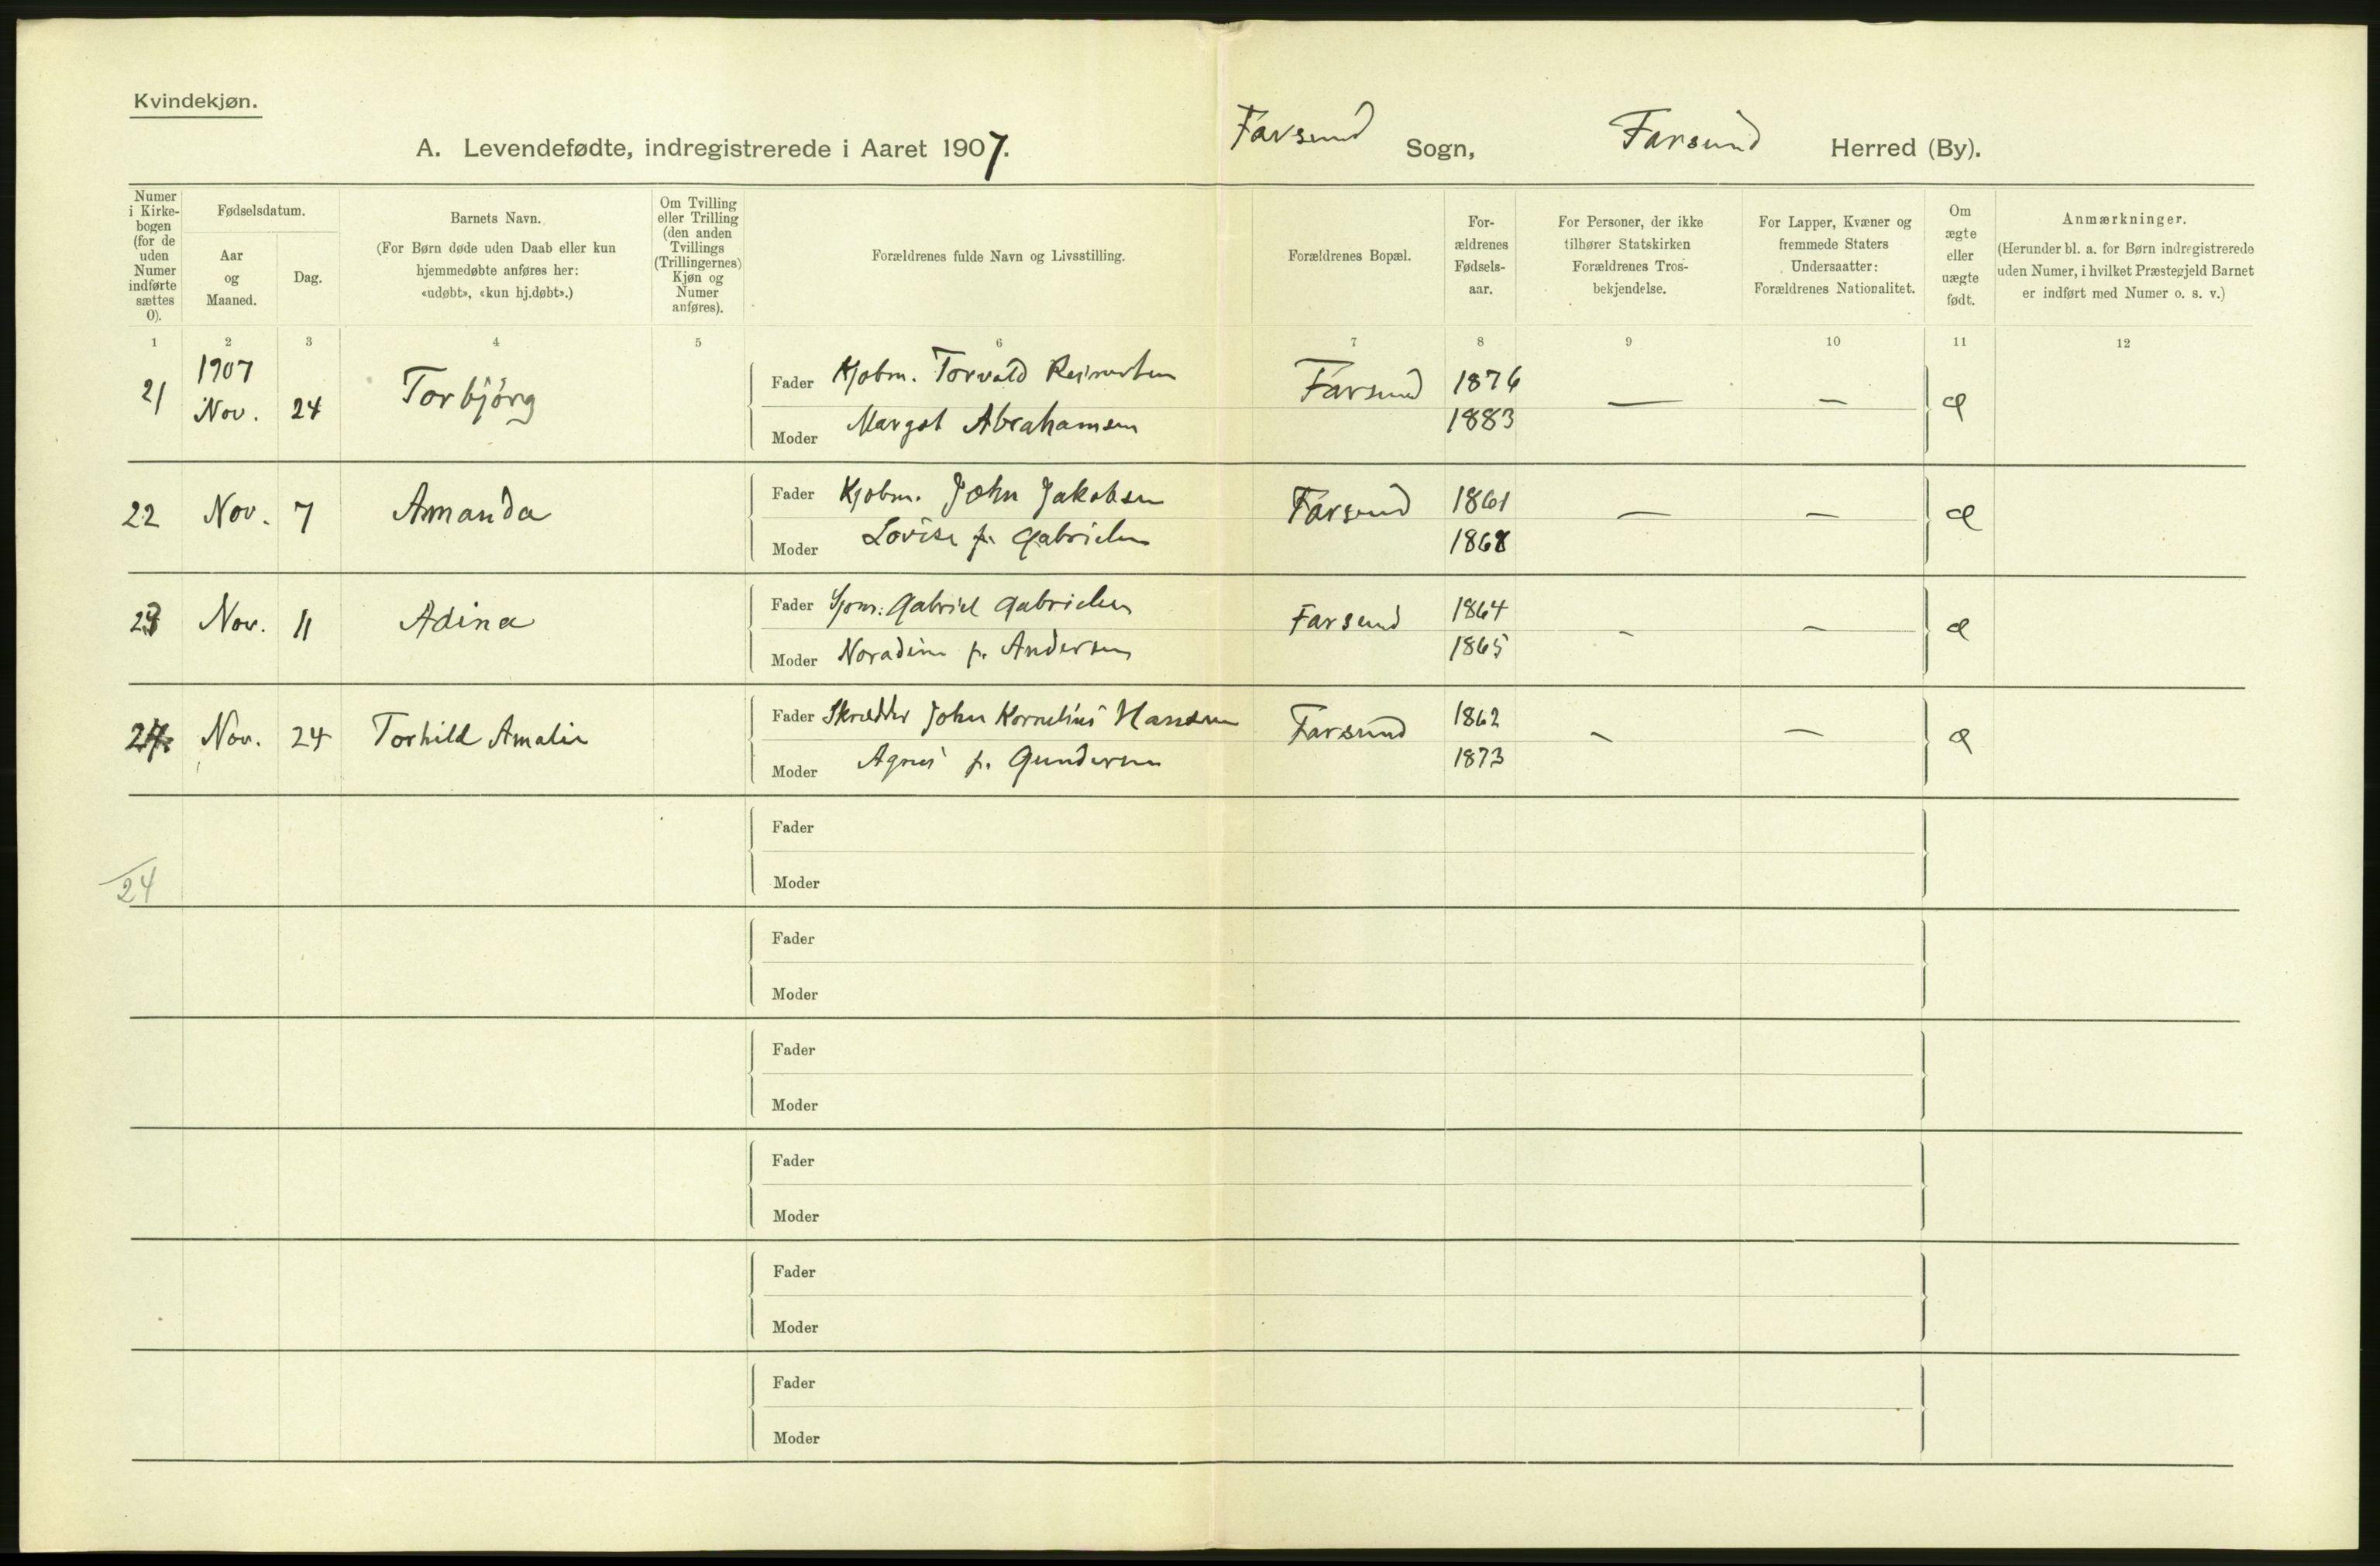 Kvindekjøn.
A. Levendefødte, indregistrerede i Aaret 1907.
Farsund Sogn, Farsund Herred (By).
Numer i Kirke-bogen (for de uden Numer indførte sættes 0).
Fødselsdatum.
Aar og Maaned.
Dag.
Barnets Navn.
(For Børn døde uden Daab eller kun hjemmedøbte anføres her: «udøbt», «kun hj.døbt».)
Om Tvilling eller Trilling (den anden Tvillings (Trillingernes) Kjøn og Numer anføres).
Forældrenes fulde Navn og Livsstilling.
Forældrenes Bopæl.
For-ældrenes Fødsels-aar.
For Personer, der ikke tilhører Statskirken Forældrenes Tros-bekjendelse.
For Lapper, Kvæner og fremmede Staters Undersaatter: Forældrenes Nationalitet.
Om ægte eller uægte født.
Anmærkninger.
(Herunder bl. a. for Børn indregistrerede uden Numer, i hvilket Præstegjeld Barnet er indført med Numer o. s. v.)
1 2 3 4 5 6 7 8 9 10 11 12
21 1907 Nov. 24 Torbjörg Fader Kjøbm. Torvald Reinertsen Farsund 1876 — — æ
Moder Margot Abrahamsen 1883
22 Nov. 7 Amanda Fader Kjøbm. John Jakobsen Farsund 1861 — — æ
Moder Lovise f. Gabrielsen 1868
23 Nov. 11 Adina Fader Sjøm: Gabriel Gabrielsen Farsund 1864 - - æ
Moder f. Andersen 1865
24. Nov. 24 Torhild Amalie Fader Skrædder John Kornelius Hansen Farsund 1862 - - æ
Moder Agnes f. Gundersen 1873
Fader
Moder
24
Fader
Moder
Fader
Moder
Fader
Moder
Fader
Moder
Fader
Moder